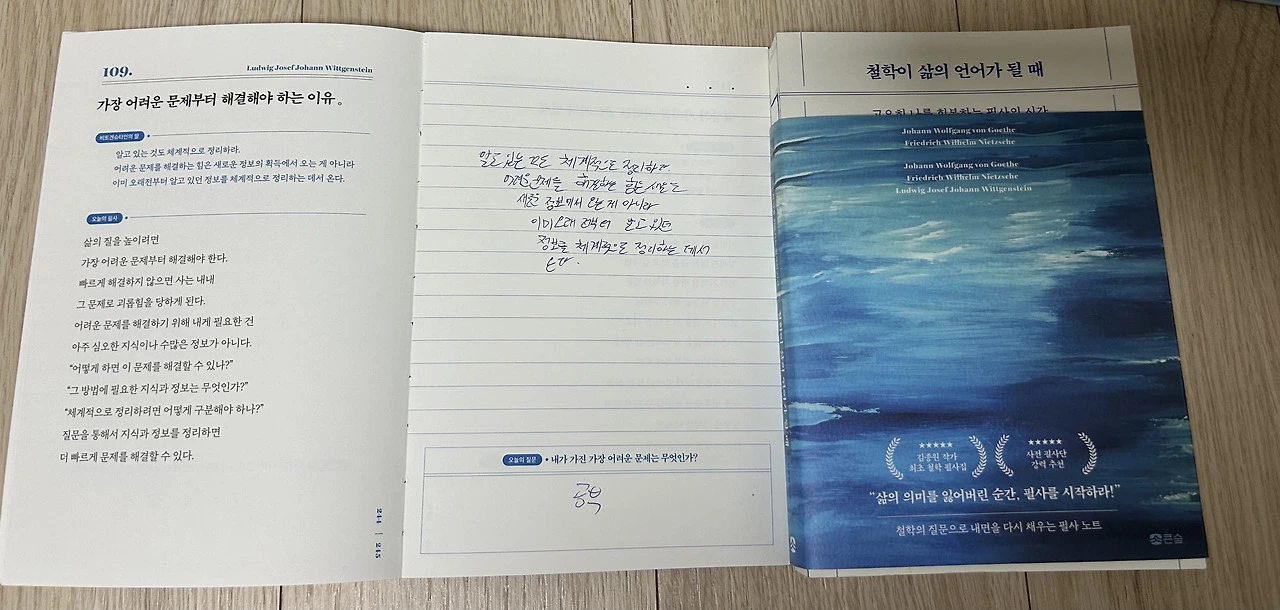 109.
Ludwig Josef Johann Wittgenstein
가장 어려운 문제부터 해결해야 하는 이유。
비트겐슈타인의 말
알고 있는 것도 체계적으로 정리하라.
어려운 문제를 해결하는 힘은 새로운 정보의 획득에서 오는 게 아니라
이미 오래전부터 알고 있던 정보를 체계적으로 정리하는 데서 온다.
오늘의 필사
삶의 질을 높이려면
가장 어려운 문제부터 해결해야 한다.
빠르게 해결하지 않으면 사는 내내
그 문제로 괴롭힘을 당하게 된다.
어려운 문제를 해결하기 위해 내게 필요한 건
아주 심오한 지식이나 수많은 정보가 아니다.
“어떻게 하면 이 문제를 해결할 수 있나?”
“그 방법에 필요한 지식과 정보는 무엇인가?”
“체계적으로 정리하려면 어떻게 구분해야 하나?”
질문을 통해서 지식과 정보를 정리하면
더 빠르게 문제를 해결할 수 있다.
244 | 245
알고 있는 것도 체계적으로 정리하라.
어려운 문제를 해결하는 힘은
새로운 정보에서 오는 게 아니라
이미 오래 전부터 알고 있던
정보를 체계적으로 정리하는 데서
온다.
오늘의 질문 • 내가 가진 가장 어려운 문제는 무엇인가?
공부
철학이 삶의 언어가 될 때
고요히 나를 회복하는 필사의 시간
Johann Wolfgang von Goethe
Friedrich Wilhelm Nietzsche
Johann Wolfgang von Goethe
Friedrich Wilhelm Nietzsche
Ludwig Josef Johann Wittgenstein
★★★★★
김종원 작가
최초 철학 필사집
★★★★★
사전 필사단
강력 추천
“삶의 의미를 잃어버린 순간, 필사를 시작하라!”
철학의 질문으로 내면을 다시 채우는 필사 노트
큰숲